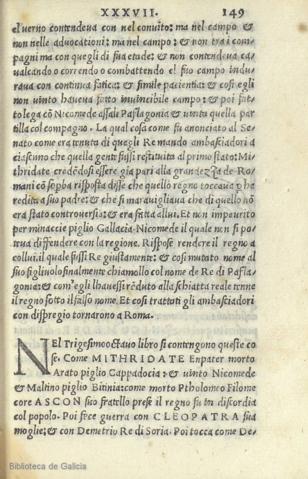 XXXVII. 149
el verno contendeva con nel convito: ma nel campo &
non nelle advocationi: ma nel campo: & non tra i com-
pagni ma con quegli di sua etade: & non contendeva ca-
valcando o correndo o combattendo el suo campo indu-
rava con continua fatica: & simile pacientia: & cosi egli
non vinto haveva fatto invincibile campo: & poi fat-
to lega cō Nicomede assali Paflagonia & vinta quella par
tilla col compagno. La qual cosa come fu anonciato al Se-
nato come era tenuta di quegli Re mando ambasciadori a
ciascuno che quella gente fussi restituita al primo stato: Mi-
thridate credēdosi essere gia pari alla grandezza de Ro-
mani cō supba risposta disse che quello regno toccava p he
redita a suo padre: & che si maravigliava che di quello nō
era stato controversia: & era fatta allui. Et non impaurito
per minaccie piglio Gallacia. Nicomede il quale non si po-
teva diffendere con la regione. Rispose rendere il regno a
collui. il quale fussi Re giustamente: & cosi mutato nome al
suo figliuolo finalmente chiamollo col nome de Re di Pafla-
gonia: & com'egli havessi rēduto alla schiatta reale tenne
il regno sotto il falso nome. Et cosi trattati gli ambasciadori
con dispregio tornarono a Roma.
NEl Trigesimoottavo libro si contengono queste co
se. Come MITHRIDATE Enpater morto
Arato piglio Cappadocia: & vinto Nicomede
& Maltino piglio Bitinia: come morto Ptholomeo Filome
core ASCON suo fratello prese il regno fu in discordia
col popolo. Poi fece guerra con CLEOPATRA sua
moglie: & con Demetrio Re di Soria. Poi tocca come De-
Biblioteca de Galicia